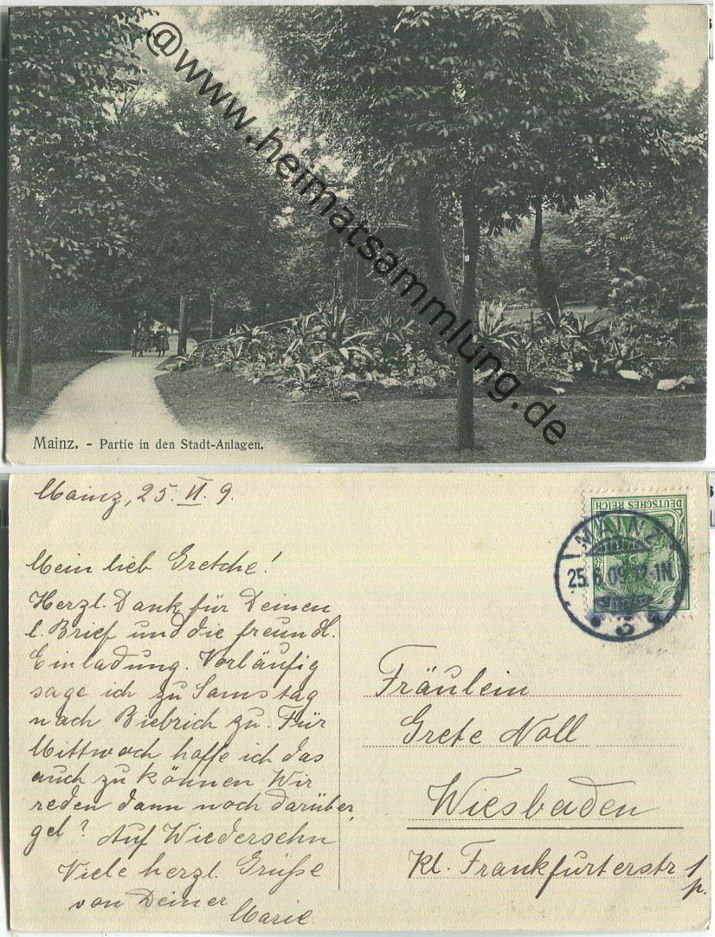 @www.heimatsammlung.de
Mainz. - Partie in den Stadt-Anlagen.
Mainz, 25. VI. 9.
DEUTSCHES REICH
MAINZ
25.6.09.12-1N.
3
Mein lieb Gretche!
Herzl. Dank für Deinen
l. Brief und die freundl.
Einladung. Vorläufig
sage ich zu Samstag
nach Biebrich zu. Für
Mittwoch hoffe ich das
auch zu können Wir
reden dann noch darüber,
gel? Auf Wiedersehn
Viele herzl. Grüße
von Deiner
Marie.
Fräulein
Grete Noll
Wiesbaden
Kl. Frankfurterstr 1
p.